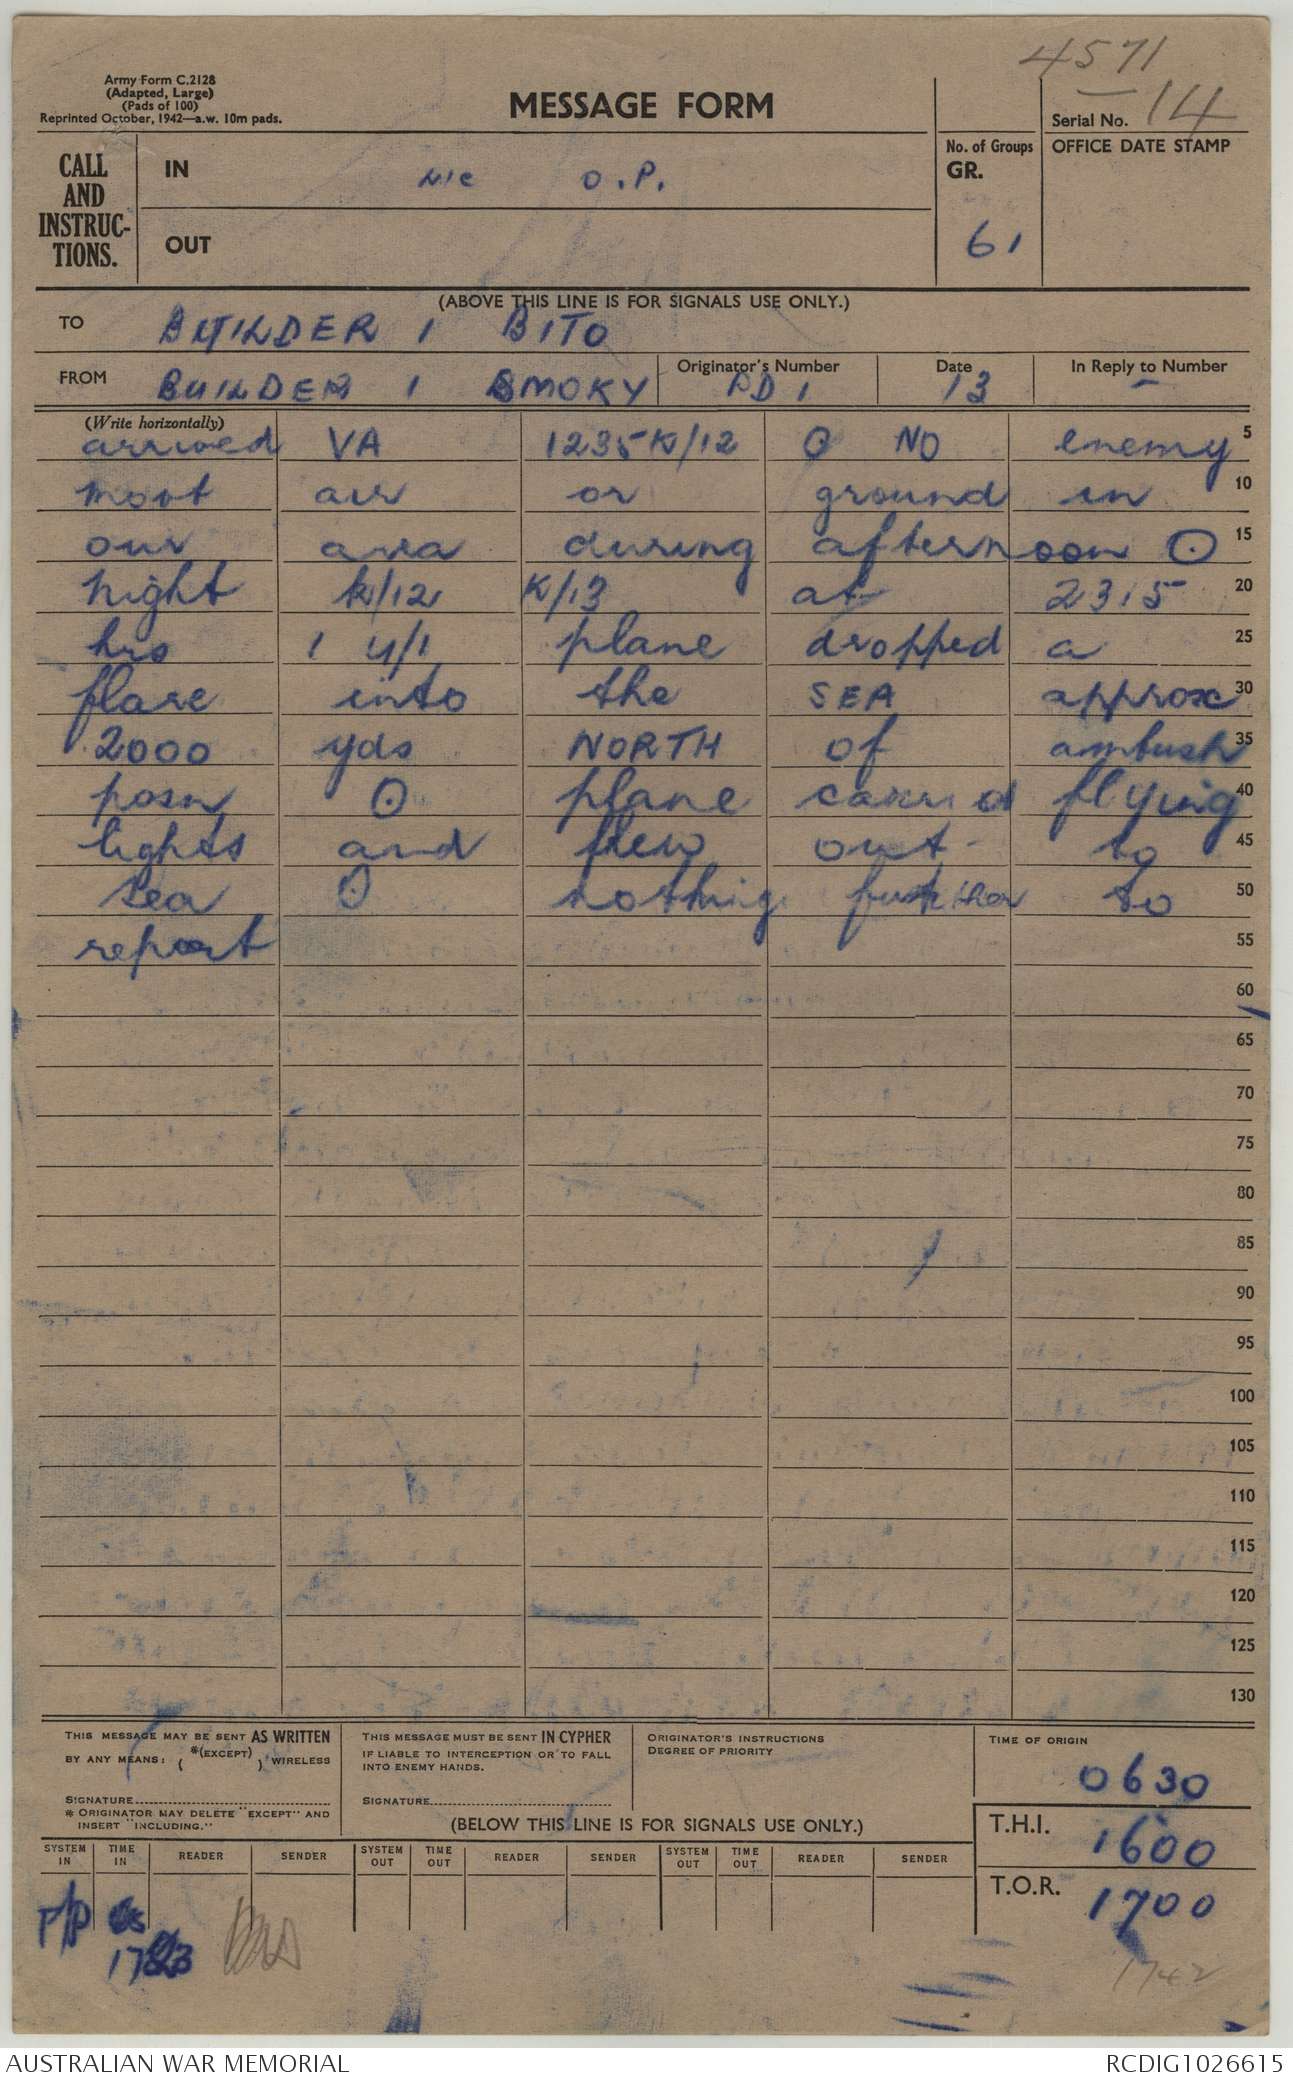 4571
Army Form C.2128
(Adapted, Large)
(Pads of 100)
Reprinted October, 1942—a.w. 10m pads.
MESSAGE FORM
Serial No. 14
CALL AND INSTRUC-TIONS.
IN O.P.
No. of Groups GR. 61
OFFICE DATE STAMP
OUT
(ABOVE THIS LINE IS FOR SIGNALS USE ONLY.)
TO BUILDER 1 BITO
FROM BUILDER 1 SMOKY Originator's Number PD 1 Date 13 In Reply to Number –
(Write horizontally)
arrived VA 1235K/12 O NO enemy 5
movt air or ground in 10
our area during afternoon ⊙ 15
night K/12 K/13 at 2315 20
hrs 1 u/i plane dropped a 25
flare into the SEA approx 30
2000 yds NORTH of ambush 35
posn ⊙ plane carried flying 40
lights and flew out to 45
sea ⊙ nothing further to 50
report 55
60
65
70
75
80
85
90
95
100
105
110
115
120
125
130
THIS MESSAGE MAY BE SENT AS WRITTEN
BY ANY MEANS: ( *(EXCEPT) ) WIRELESS
SIGNATURE
* ORIGINATOR MAY DELETE "EXCEPT" AND
INSERT "INCLUDING."
THIS MESSAGE MUST BE SENT IN CYPHER
IF LIABLE TO INTERCEPTION OR TO FALL
INTO ENEMY HANDS.
SIGNATURE
ORIGINATOR'S INSTRUCTIONS
DEGREE OF PRIORITY
TIME OF ORIGIN
0630
(BELOW THIS LINE IS FOR SIGNALS USE ONLY.)
T.H.I. 1600
T.O.R. 1700
SYSTEM IN TIME IN READER SENDER SYSTEM OUT TIME OUT READER SENDER SYSTEM OUT TIME OUT READER SENDER
P/P
1742
AUSTRALIAN WAR MEMORIAL RCDIG1026615